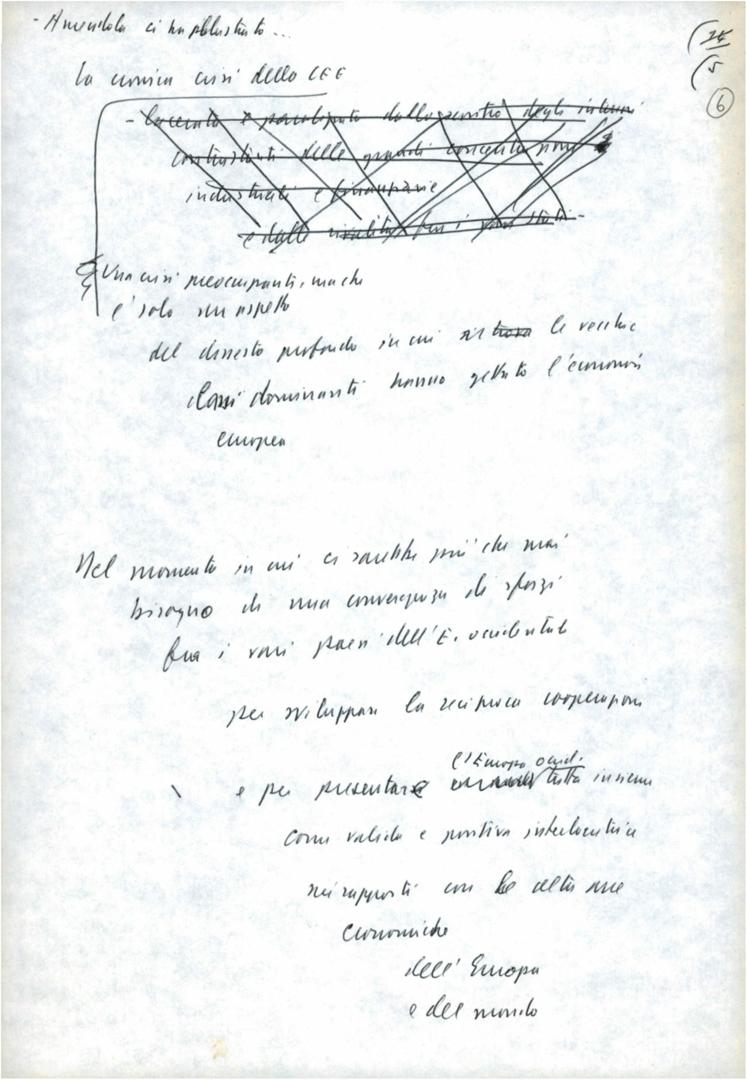 - Amendola ci ha illustrato...
25/5
6
la cronica crisi della CEE
- lacerata e paralizzata dallo scontro degli interessi
contrastanti delle grandi concentrazioni
industriali e finanziarie
e dalle rivalità fra i vari stati -
Una crisi preoccupante, ma che
è solo un aspetto
del dissesto profondo in cui si trova le vecchie
classi dominanti hanno gettato l'economia
europea
Nel momento in cui ci sarebbe più che mai
bisogno di una convergenza di sforzi
fra i vari paesi dell'E. occidentale
per sviluppare la reciproca cooperazione
l'Europa occid.
e per presentare tutta insieme
come valida e positiva interlocutrice
nei rapporti con le altre aree
economiche
dell'Europa
e del mondo